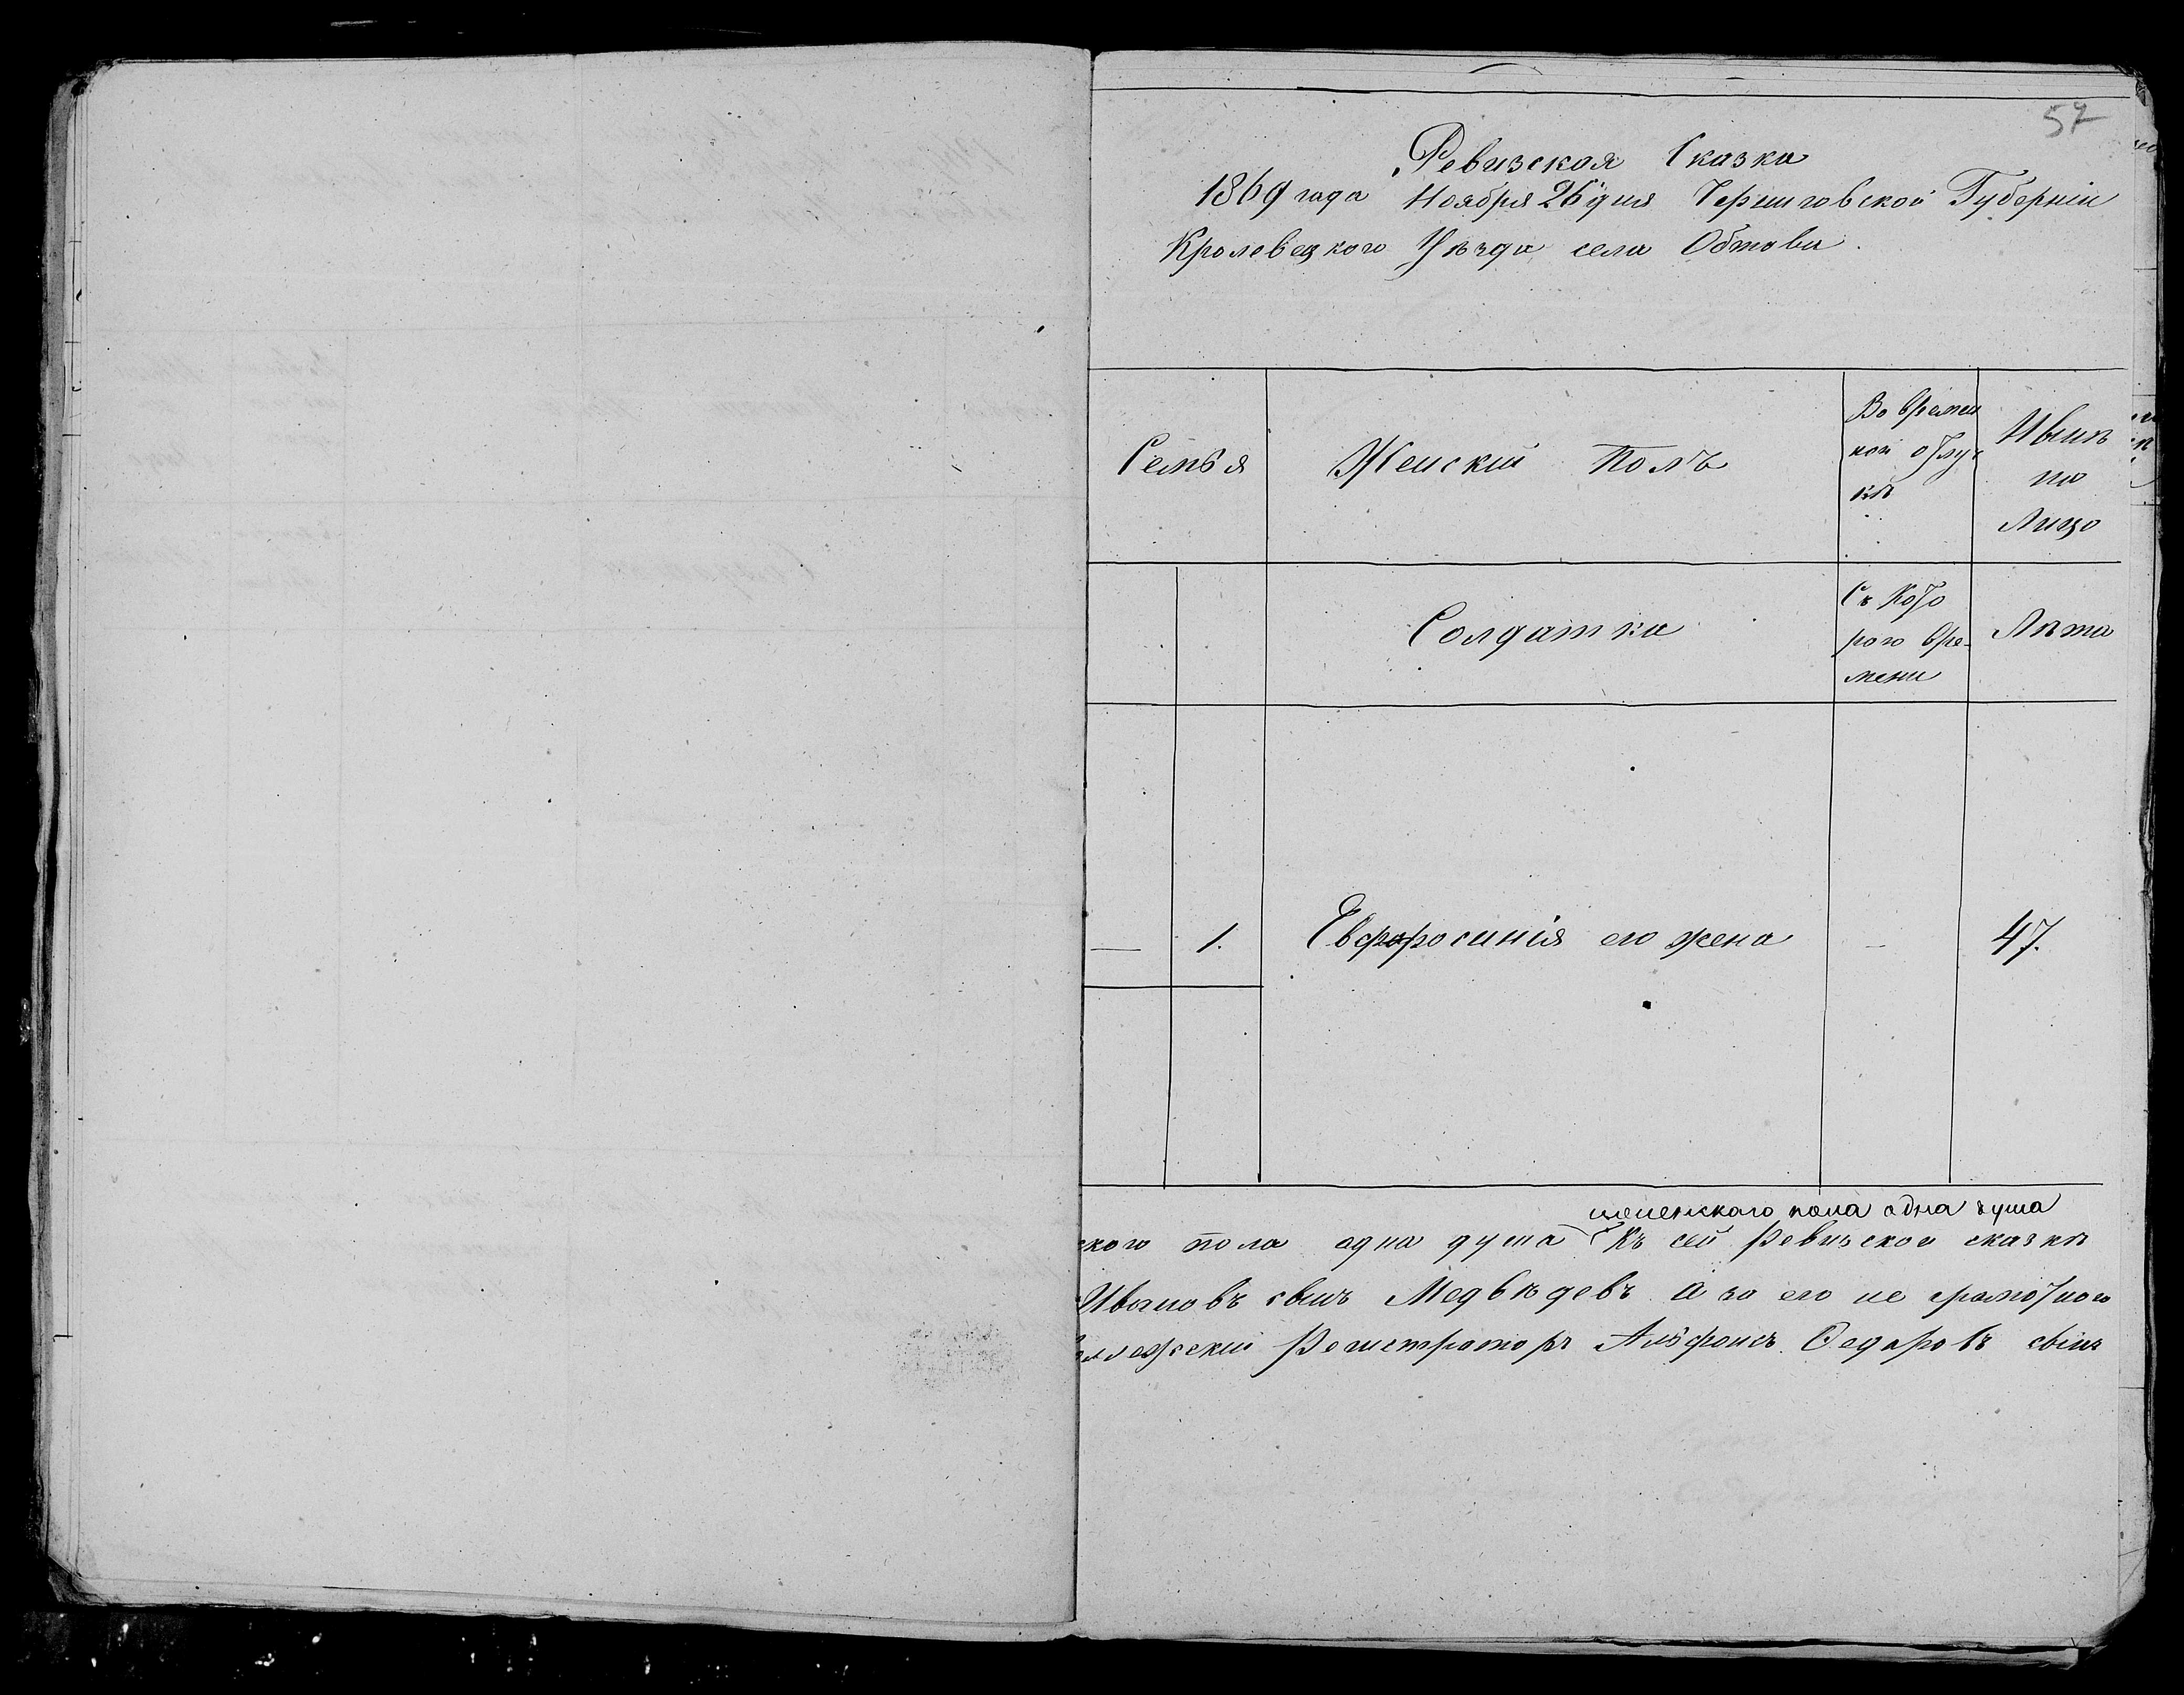 57
Ревизская Сказка
1869 года Ноября 26 дня Черниговской Губерніи
Кролевецкого Уѣзда села Обтова.
Семья
Женскій Полъ
Во времен
ной отлуч
кѣ
Нынѣ
на
Лицо
Солдатка
Съ Кото
рого вре-
мени
Лѣта
— 1. Евфросинія его жена — 47.
женскаго пола одна душа
ского пола одна душа Къ сей Ревизской сказкѣ
Ивановъ сынъ Медвѣдевъ а за его не грамотного
Регистраторъ Алфонсъ Федоровъ сынъ